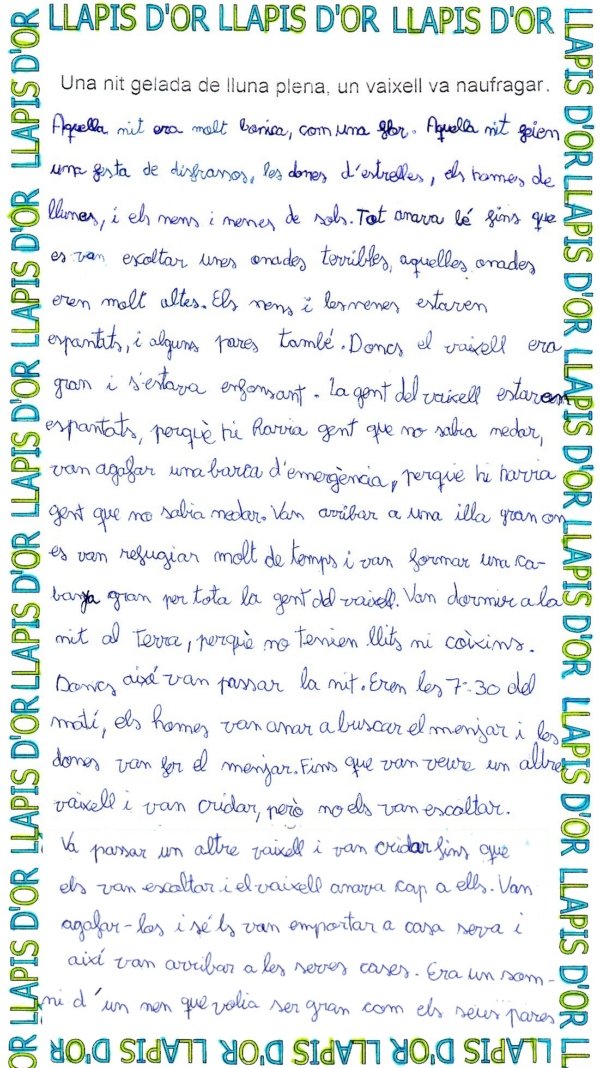 LLAPIS D'OR LLAPIS D'OR LLAPIS D'OR
Una nit gelada de lluna plena, un vaixell va naufragar.
Aquella nit era molt bonica, com una flor. Aquella nit feien
una festa de disfrassos, les dones d'estrelles, els homes de
llunes, i els nens i nenes de sols. Tot anava bé fins que
es van escoltar unes onades terribles, aquelles onades
eren molt altes. Els nens i les nenes estaven
espantats, i alguns pares també. Doncs el vaixell era
gran i s'estava enfonsant. La gent del vaixell estaven
espantats, perquè hi havia gent que no sabia nedar,
van agafar una barca d'emergència, perquè hi havia
gent que no sabia nedar. Van arribar a una illa gran on
es van refugiar molt de temps i van formar una ca-
banya gran per tota la gent del vaixell. Van dormir a la
nit al terra, perquè no tenien llits ni coixins.
Doncs així van passar la nit. Eren les 7:30 del
matí, els homes van anar a buscar el menjar i les
dones van fer el menjar. Fins que van veure un altre
vaixell i van cridar, però no els van escoltar.
Va passar un altre vaixell i van cridar fins que
els van escoltar i el vaixell anava cap a ells. Van
agafar-los i sé ls van emportar a casa seva i
així van arribar a les seves cases. Era un som-
ni d'un nen que volia ser gran com els seus pares
LLAPIS D'OR LLAPIS D'OR LLAPIS D'OR
LLAPIS D'OR LLAPIS D'OR LLAPIS D'OR LLAPIS D'OR LLAPIS D'OR LLAPIS D'OR
LLAPIS D'OR LLAPIS D'OR LLAPIS D'OR LLAPIS D'OR LLAPIS D'OR LLAPIS D'OR